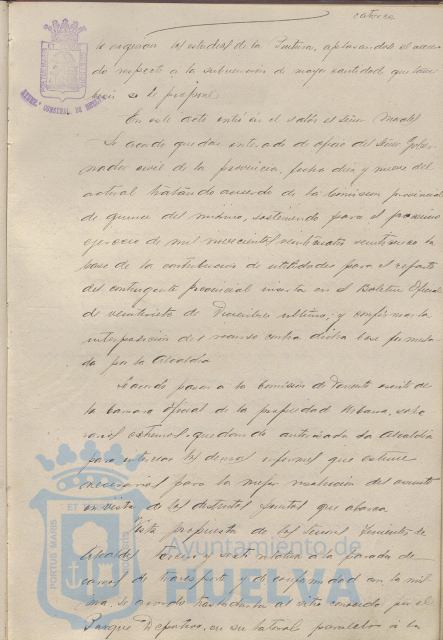 catorce
se exijieran los estudios de la Pintura, aplazandose el acuer
do respecto a la subvencion de mayor cantidad que tam
bien se le propone
En este acto entró en el salón el señor Macés
Se acordó quedar enterado de oficio del Señor Gober
nador civil de la provincia, fecha diez y nueve del
actual trasladando acuerdo de la Comision provincial
de quince del mismo, sosteniendo para el proximo
ejercicio de mil novecientos veinticuatro veinticinco la
base de la contribucion de utilidades para el reparto
del contingente provincial inserta en el Boletin Oficial
de veintisiete de Diciembre ultimo; y confirmar la
interposicion del recurso contra dicha base formula
da por la Alcaldia
Se acordó pasar a la Comision de escrito de
la Camara Oficial de la propiedad Urbana, sobre
varios extremos, quedando autorizada la Alcaldia
para interesar los demas informes que estime
necesarios para la mejor resolucion del asunto
en vista de los distintos puntos que abarca
Vista propuesta de los señores Tenientes de
Alcaldes Tercero y sexto relativa a la parada de
carros de trasporte y de conformidad con la mis
ma, se acordó trasladarla al sitio conocido por el
Parque Deportivo, en su lateral paralelo a la
Ayuntamiento de
HUELVA
PORTUS MARIS
ET